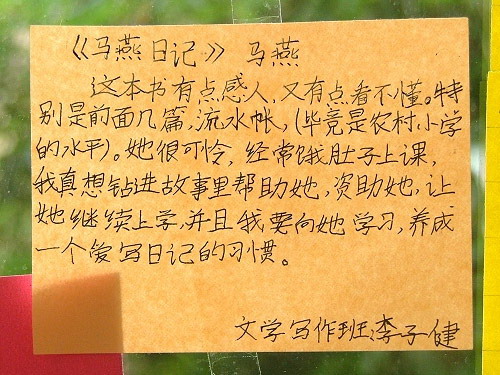 《马燕日记》 马燕
这本书有点感人,又有点看不懂。特
别是前面几篇,流水帐,(毕竟是农村小学
的水平)。她很可怜,经常饿肚子上课,
我真想钻进故事里帮助她,资助她,让
她继续上学,并且我要向她学习,养成
一个爱写日记的习惯。
文学写作班李子健